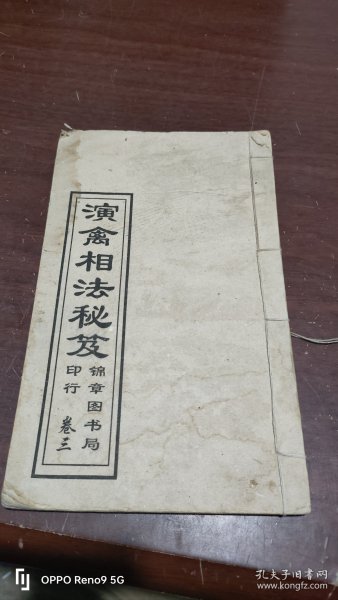 演禽相法秘笈
锦章图书局
印行
卷三
OPPO Reno9 5G
孔夫子旧书网
www.kongfz.com